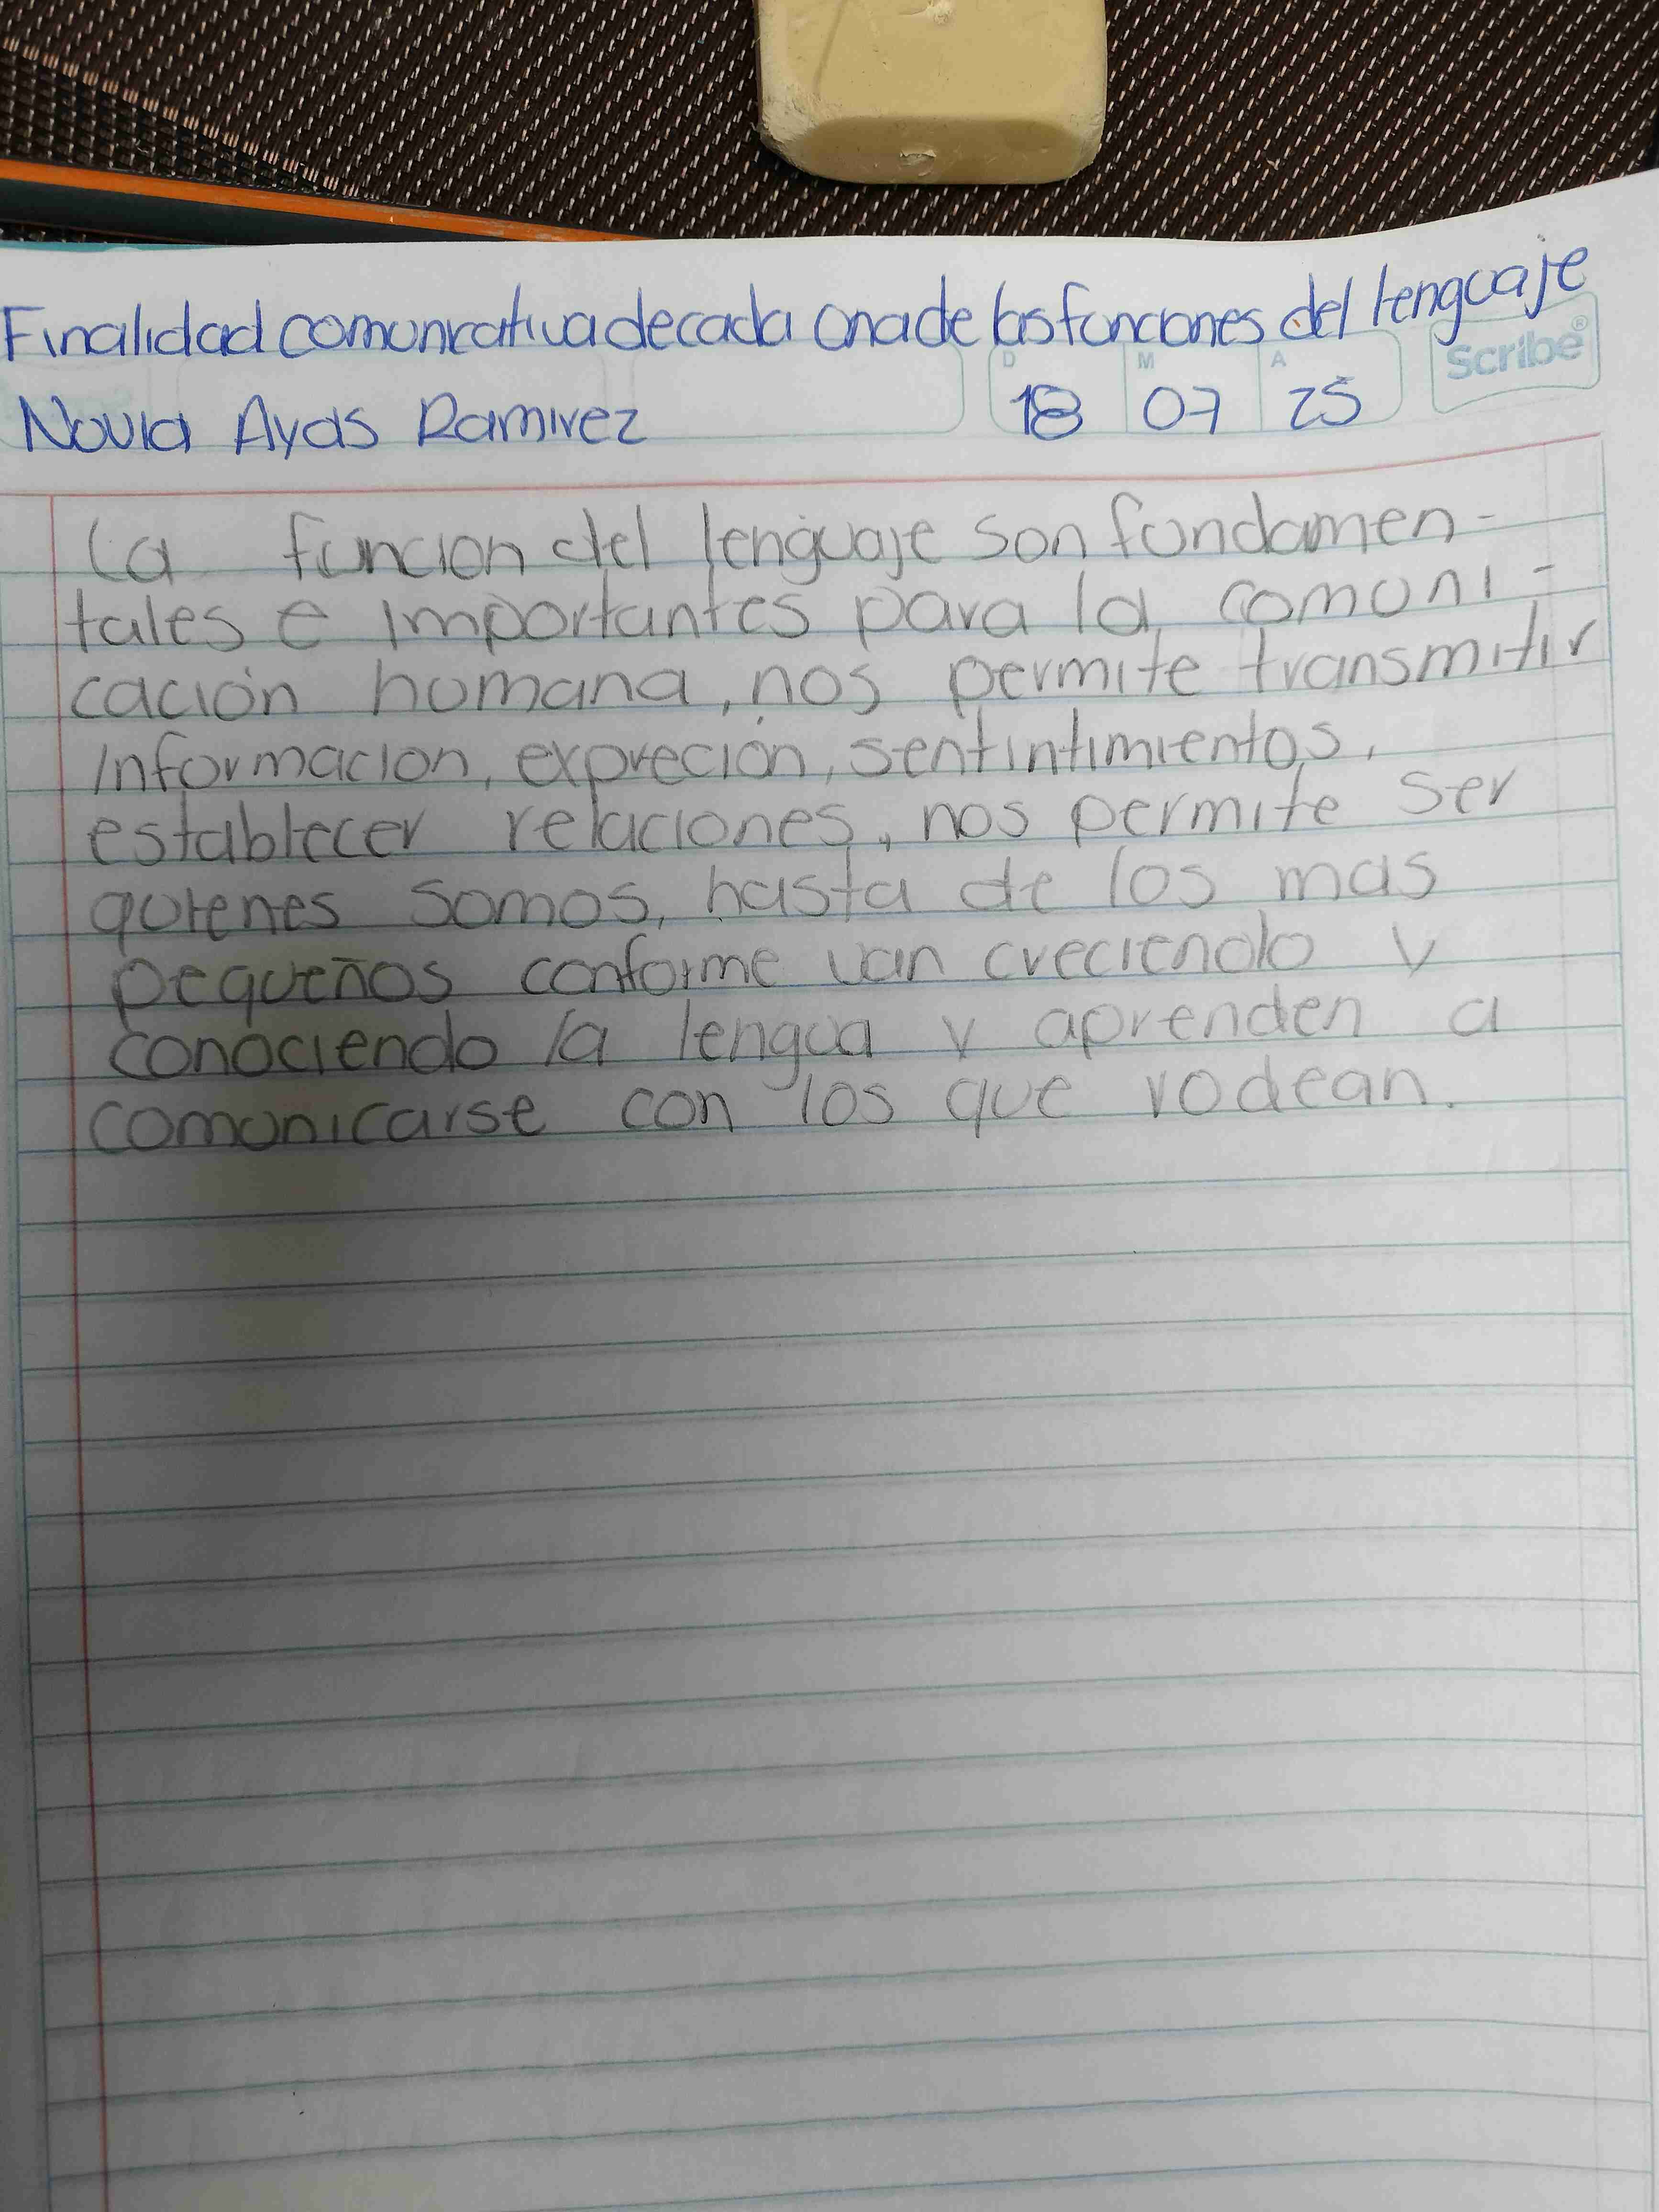 Finalidad comunicativa de cada una de las funciones del lenguaje
Scribe®
D M A
Ayas Ramirez 18 07 25
La funcion del lenguaje son fundamen-
tales e importantes para la comuni-
cación humana, nos permite transmitir
informacion, expreción, sentintimientos,
establecer relaciones, nos permite ser
quienes somos, hasta de los mas
pequeños conforme van creciendo y
conociendo la lengua y aprenden a
comunicarse con los que rodean.